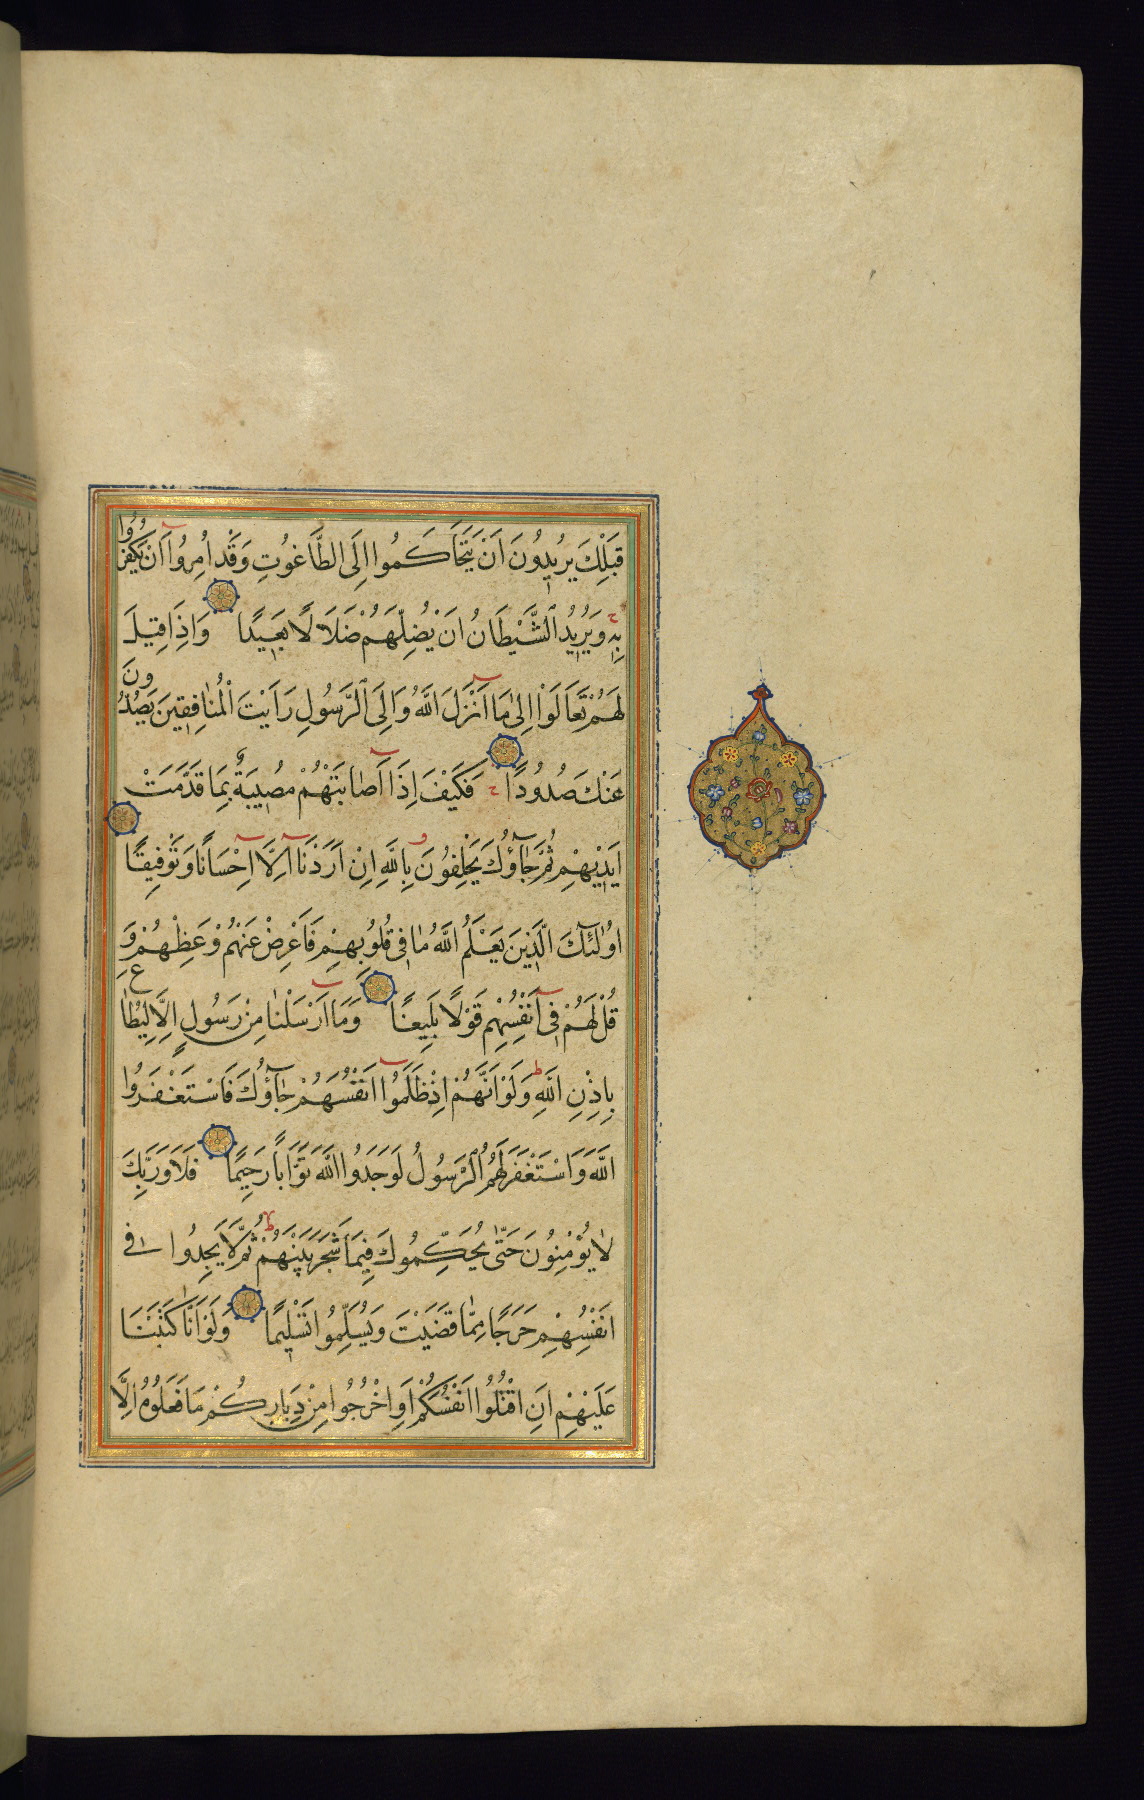 قَبْلِكَ يُرِيدُونَ اَنْ يَتَحَاكَمُوا اِلَى الطَّاغُوتِ وَقَدْ اُمِرُوا اَنْ يَكْفُرُوا
بِهِ وَيُرِيدُ الشَّيْطَانُ اَنْ يُضِلَّهُمْ ضَلَالًا بَعِيدًا وَاِذَا قِيلَ
لَهُمْ تَعَالَوْا اِلىٰ مَا اَنْزَلَ اللَّهُ وَاِلَى الرَّسُولِ رَاَيْتَ الْمُنَافِقِينَ يَصُدُّونَ
عَنْكَ صُدُودًا فَكَيْفَ اِذَا اَصَابَتْهُمْ مُصِيبَةٌ بِمَا قَدَّمَتْ
اَيْدِيهِمْ ثُمَّ جَآؤُكَ يَحْلِفُونَ بِاللَّهِ اِنْ اَرَدْنَا اِلَّا اِحْسَانًا وَتَوْفِيقًا
اُولٰئِكَ الَّذِينَ يَعْلَمُ اللَّهُ مَا فِى قُلُوبِهِمْ فَاَعْرِضْ عَنْهُمْ وَعِظْهُمْ وَ
قُلْ لَهُمْ فِى اَنْفُسِهِمْ قَوْلًا بَلِيغًا وَمَا اَرْسَلْنَا مِنْ رَسُولٍ اِلَّا لِيُطَاعَ
بِاِذْنِ اللَّهِ وَلَوْ اَنَّهُمْ اِذْ ظَلَمُوا اَنْفُسَهُمْ جَآؤُكَ فَاسْتَغْفَرُوا
اللَّهَ وَاسْتَغْفَرَ لَهُمُ الرَّسُولُ لَوَجَدُوا اللَّهَ تَوَّابًا رَحِيمًا فَلَا وَرَبِّكَ
لَا يُؤْمِنُونَ حَتّٰى يُحَكِّمُوكَ فِيمَا شَجَرَ بَيْنَهُمْ ثُمَّ لَا يَجِدُوا فِى
اَنْفُسِهِمْ حَرَجًا مِمَّا قَضَيْتَ وَيُسَلِّمُوا تَسْلِيمًا وَلَوْ اَنَّا كَتَبْنَا
عَلَيْهِمْ اَنِ اقْتُلُوا اَنْفُسَكُمْ اَوِ اخْرُجُوا مِنْ دِيَارِكُمْ مَا فَعَلُوهُ اِلَّا